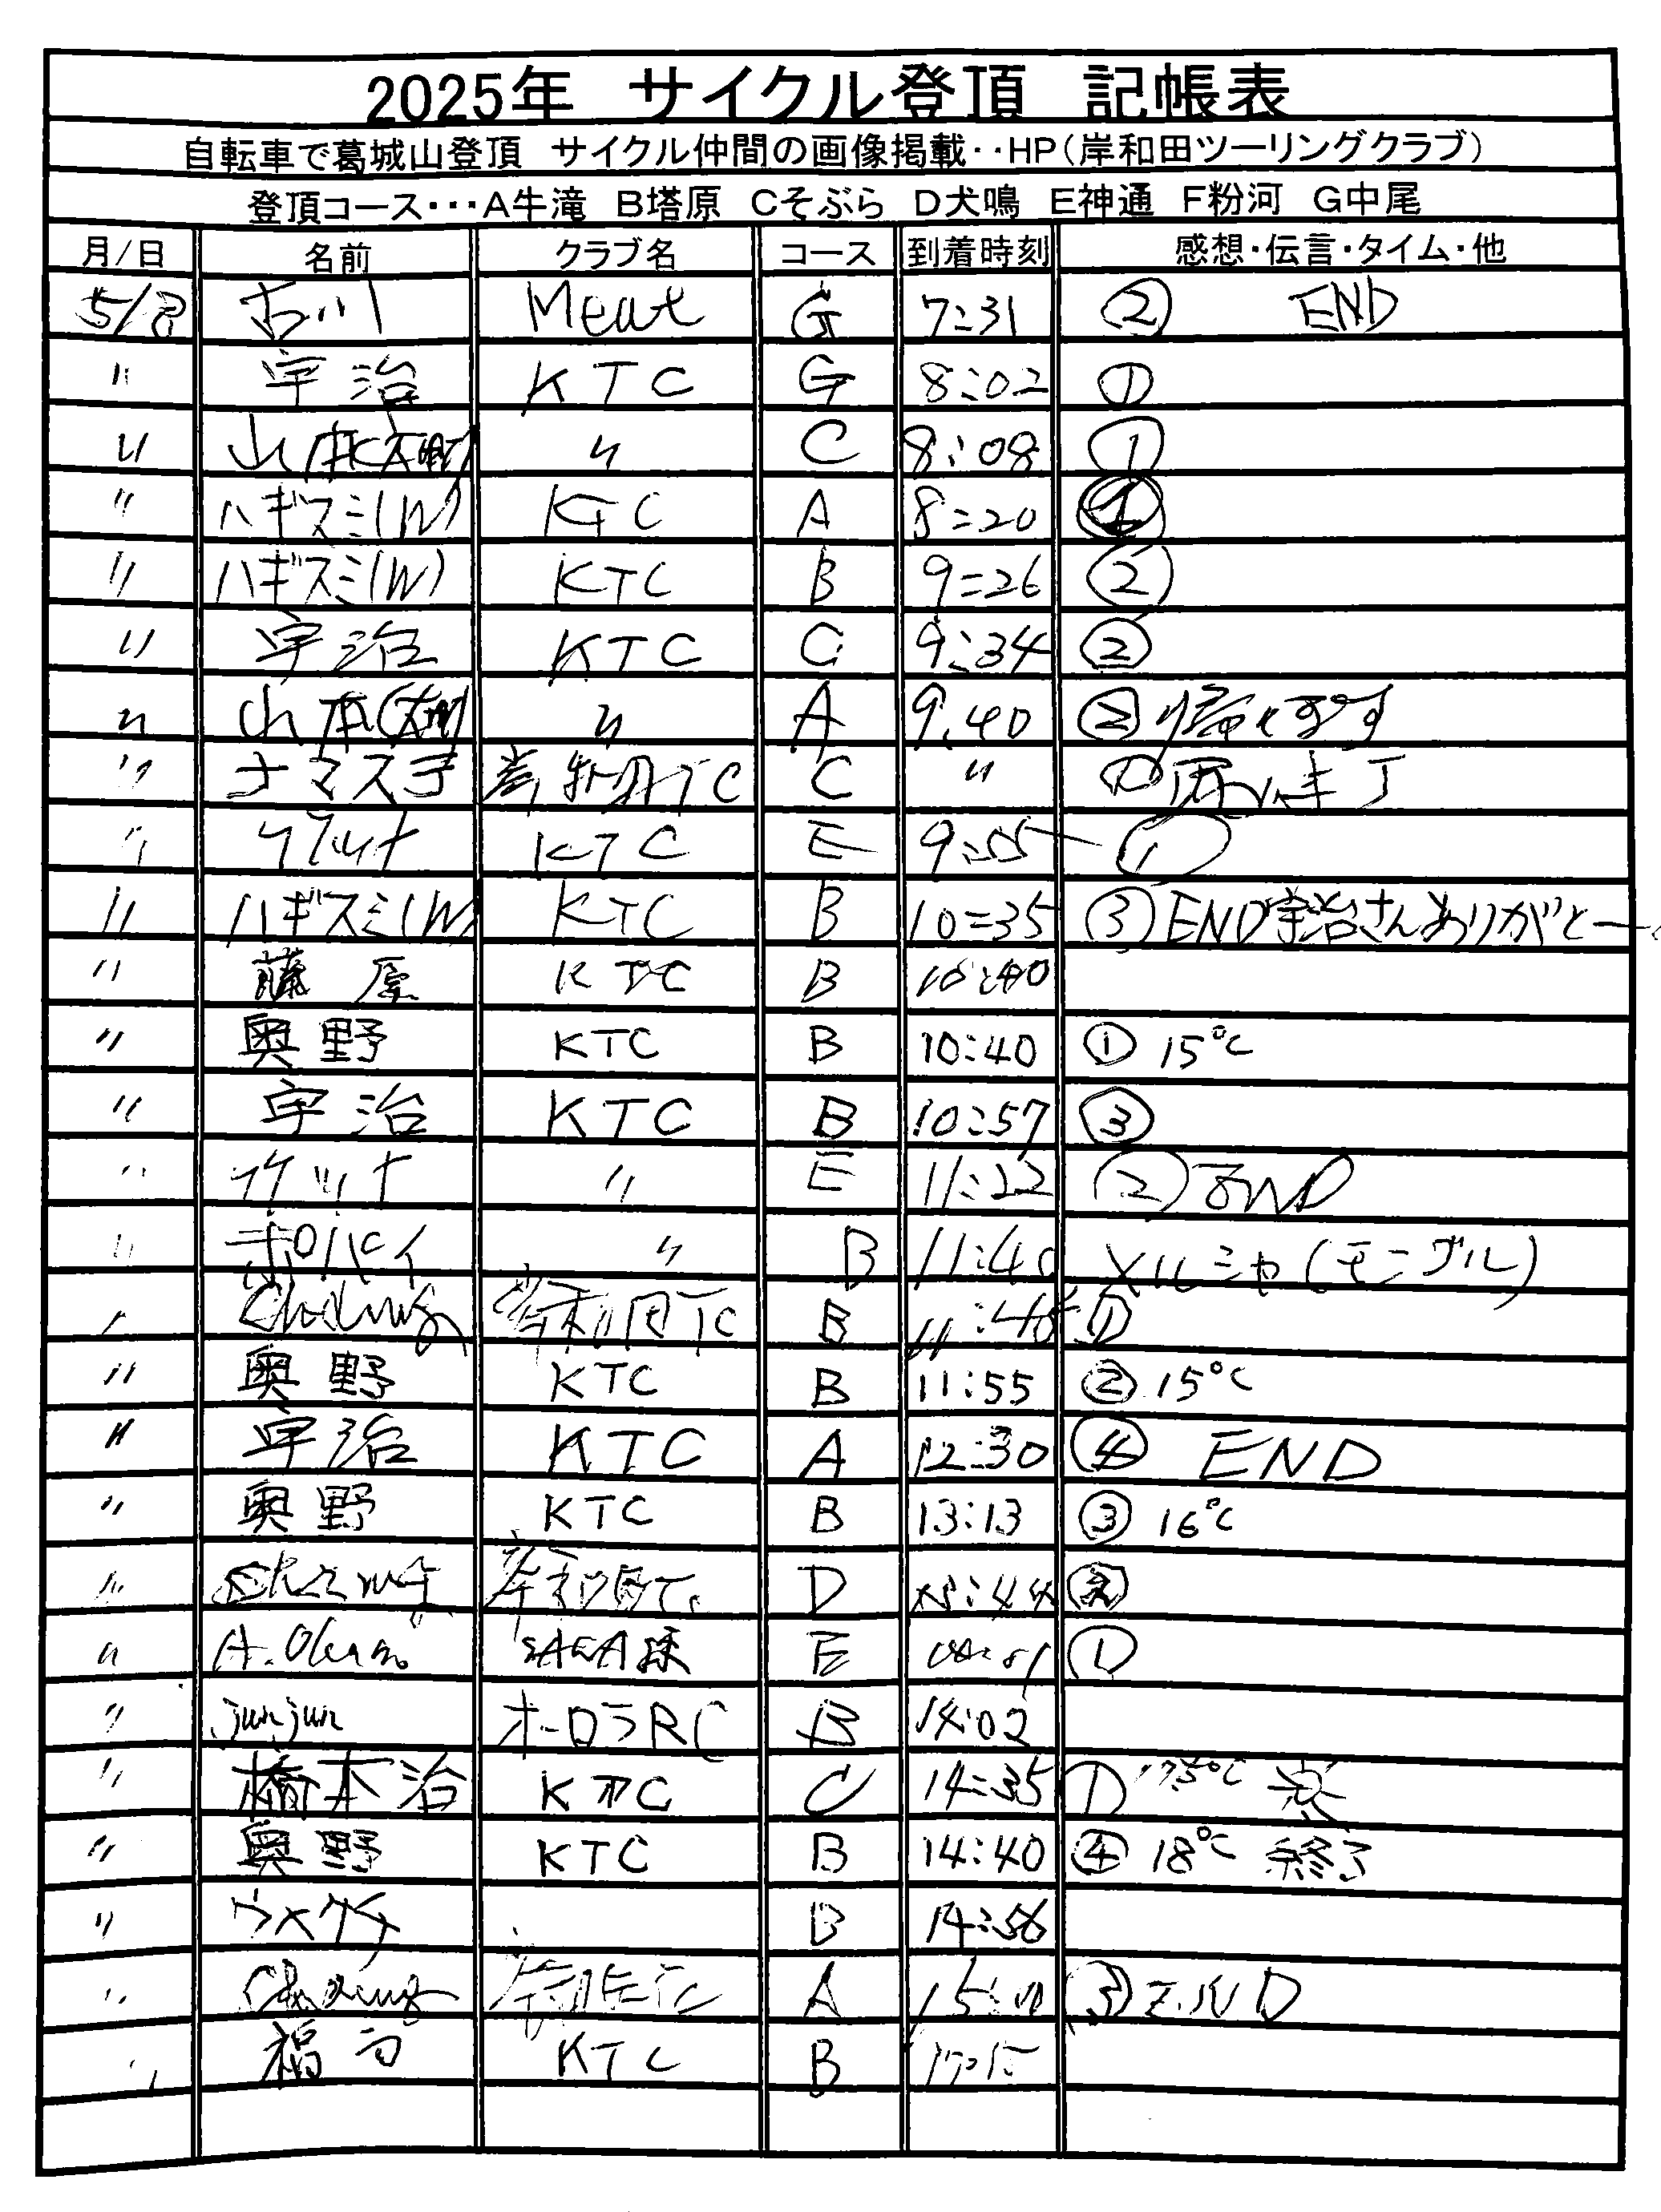 2025年 サイクル登頂 記帳表
自転車で葛城山登頂 サイクル仲間の画像掲載‥HP(岸和田ツーリングクラブ)
登頂コース･･･A牛滝 B塔原 Cそぶら D犬鳴 E神通 F粉河 G中尾
月/日 名前 クラブ名 コース 到着時刻 感想・伝言・タイム・他
5/8 古川 Meat G 7:31 ② END
〃 宇治 KTC G 8:02 ①
〃 山本 〃 C 8:08 ①
〃 ハギスミ(W) KTC A 8:20 ①
〃 ハギスミ(W) KTC B 9:26 ②
〃 宇治 KTC C 9:34 ②
〃 山本 〃 A 9.40 ②
〃 ナマステ 岸和田TC C 〃 ①
〃 KTC E 9:05 ①
〃 ハギスミ(W) KTC B 10:35 ③ END 宇治さんありがとー
〃 藤原 KTC B 10:40
〃 奥野 KTC B 10:40 ① 15℃
〃 宇治 KTC B 10:57 ③
〃 〃 E 11:22 ② END
〃 ポロバイ 〃 B 11:40 メルシャ(モンゴル)
〃 岸和田TC B ①
〃 奥野 KTC B 11:55 ② 15℃
〃 宇治 KTC A 12:30 ④ END
〃 奥野 KTC B 13:13 ③ 16℃
〃 D ②
〃 E ①
〃 junjun オーロラRC B 14:02
〃 橋本治 KTC C 14:35 ①
〃 奥野 KTC B 14:40 ④ 18℃ 終了
〃 ウメグチ B 14:56
〃 A ③ END
〃 KTC B